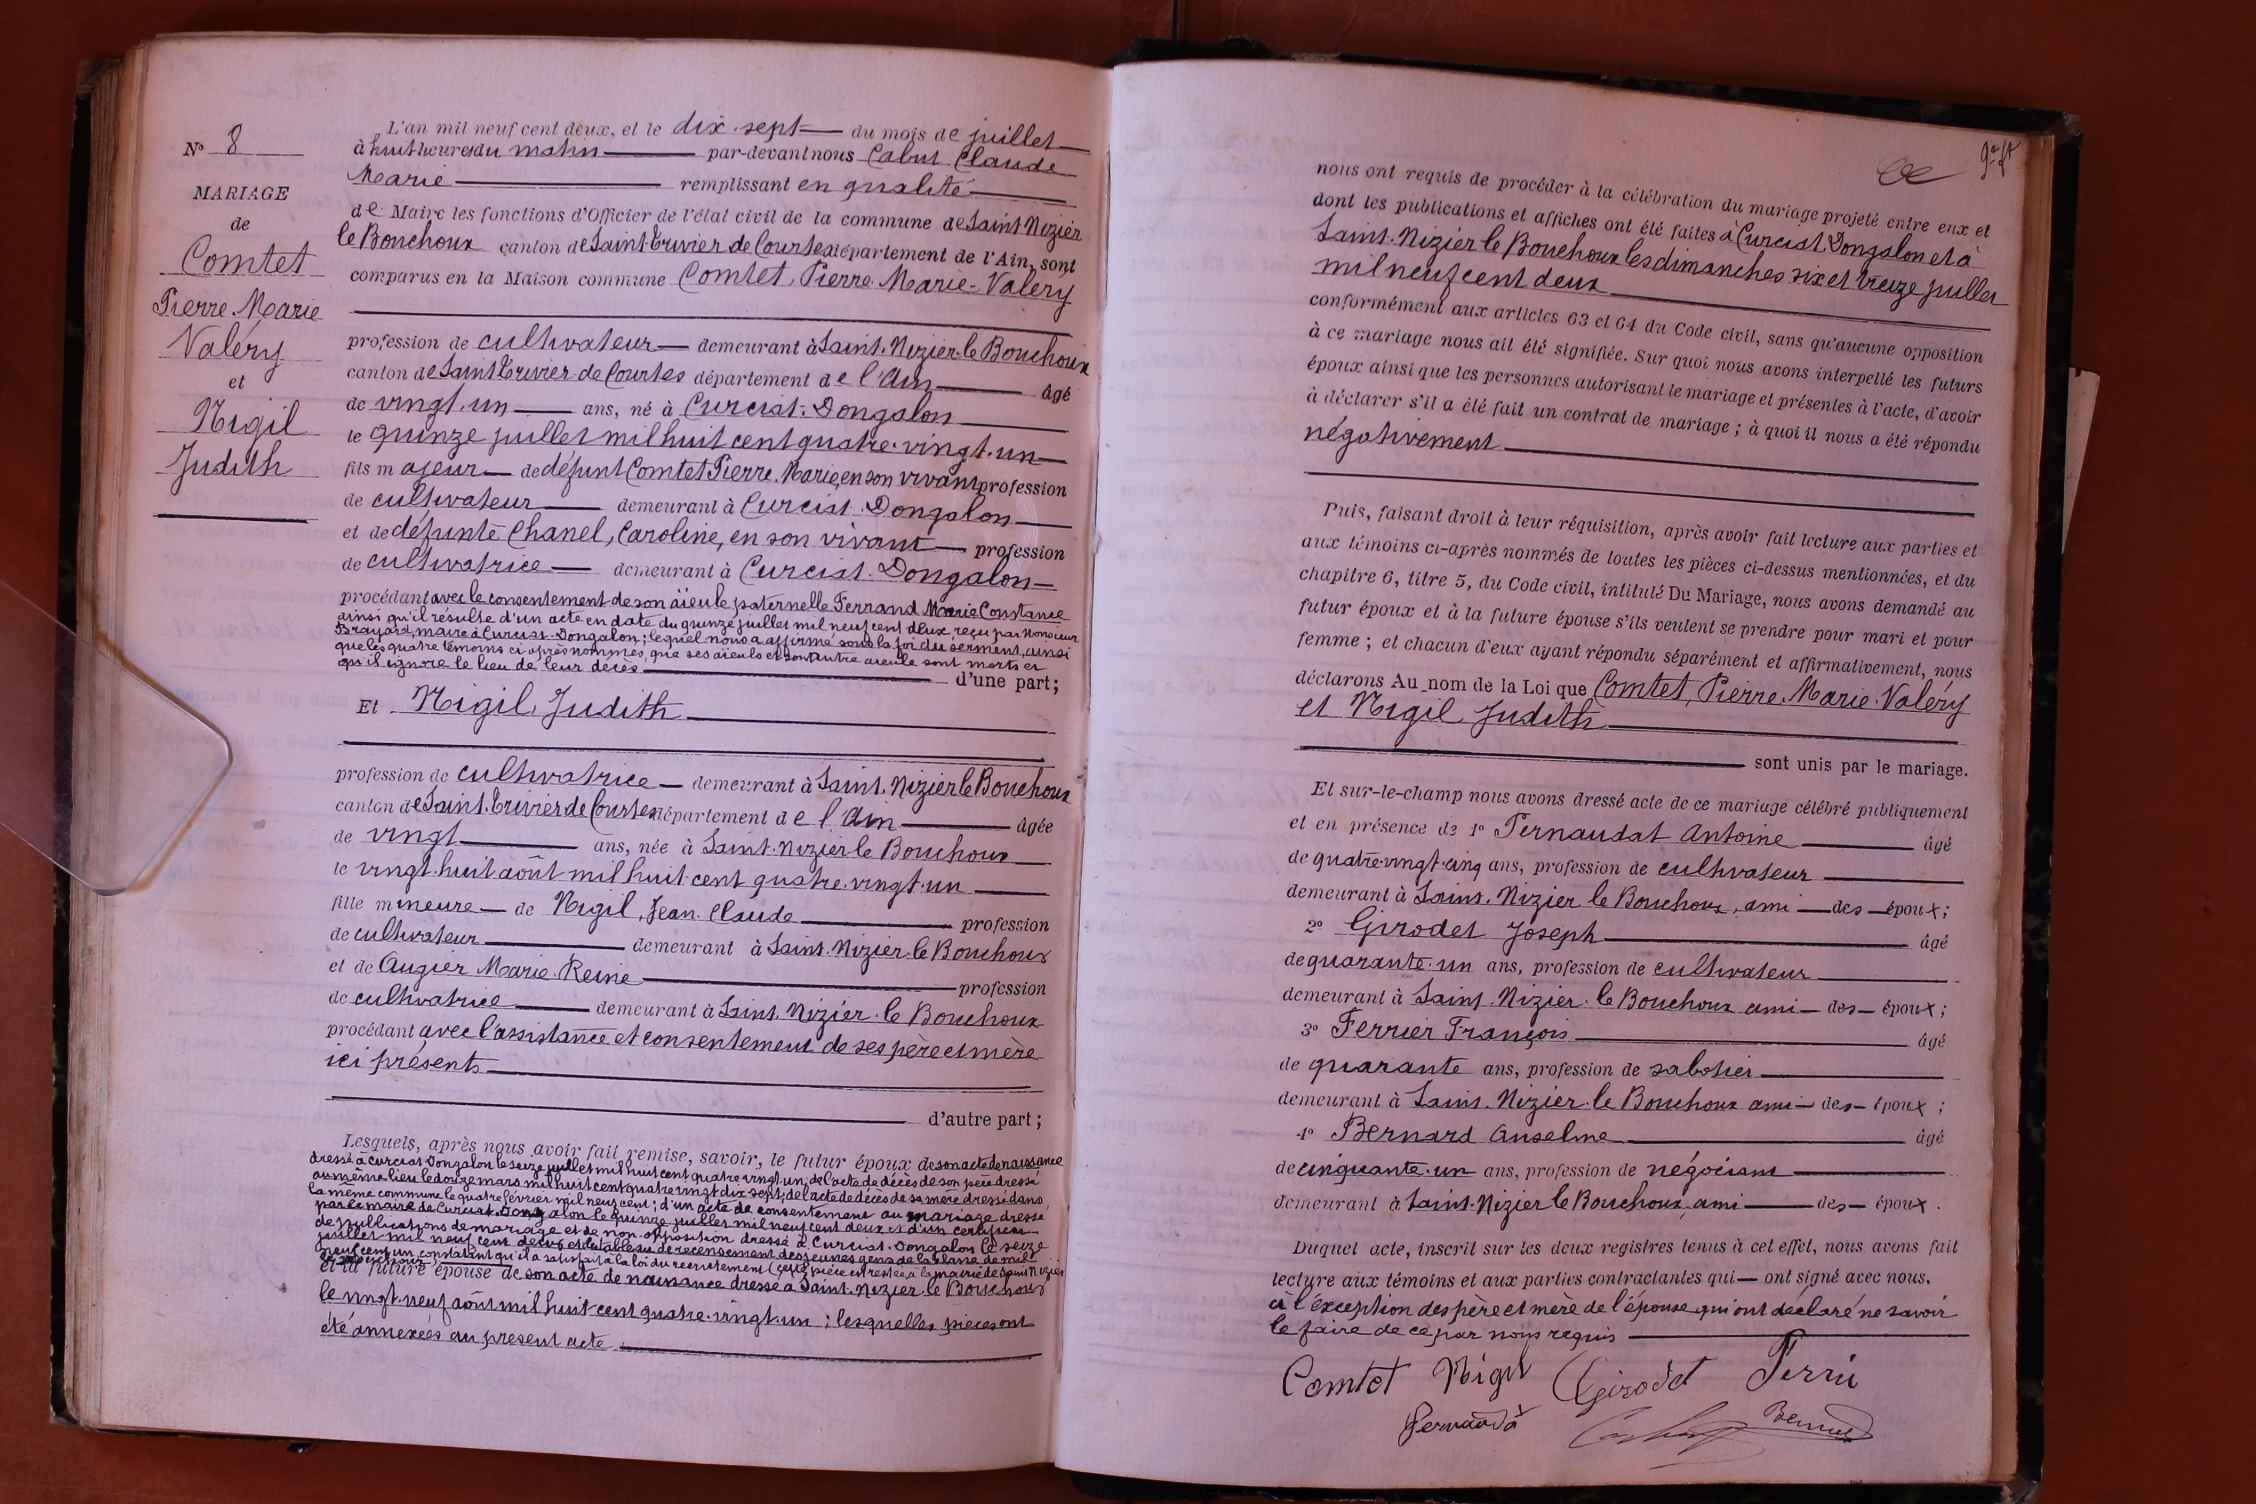 N° 8
MARIAGE
de
Comtet
Pierre Marie
Valéry
et
Nigil
Judith
L'an mil neuf cent deux, et le dix-sept du mois de juillet
à huit heures du matin par-devant nous Cabut Claude
Marie remplissant en qualité
de Maire les fonctions d'Officier de l'état civil de la commune de Saint Nizier
le Bouchoux canton de Saint Trivier de Courtes département de l'Ain, sont
comparus en la Maison commune Comtet, Pierre-Marie-Valéry
profession de cultivateur demeurant à Saint-Nizier-le Bouchoux
canton de Saint Trivier de Courtes département de l'Ain âgé
de vingt-un ans, né à Curciat-Dongalon
le quinze juillet mil huit cent quatre-vingt-un
fils majeur de défunt Comtet Pierre-Marie, en son vivant profession
de cultivateur demeurant à Curciat-Dongalon
et de défunte Chanel, Caroline, en son vivant profession
de cultivatrice demeurant à Curciat-Dongalon
procédant avec le consentement de son aïeule paternelle Ferrand Marie Constance
ainsi qu'il résulte d'un acte en date du quinze juillet mil neuf cent deux reçu par Monsieur
Brayard, maire à Curciat-Dongalon; lequel nous a affirmé sous la foi du serment, ainsi
que les quatre témoins ci-après nommés, que ses aïeuls et son autre aïeule sont morts et
qu'il ignore le lieu de leur décès d'une part;
Et Nigil, Judith
profession de cultivatrice demeurant à Saint-Nizier le Bouchoux
canton de Saint-Trivier de Courtes département de l'Ain âgée
de vingt ans, née à Saint-Nizier le Bouchoux
le vingt-huit août mil huit cent quatre-vingt-un
fille mineure de Nigil, Jean-Claude profession
de cultivateur demeurant à Saint-Nizier-le Bouchoux
et de Augier Marie-Reine profession
de cultivatrice demeurant à Saint-Nizier-le Bouchoux
procédant avec l'assistance et consentement de ses père et mère
ici présents
d'autre part;
Lesquels, après nous avoir fait remise, savoir, le futur époux de son acte de naissance
dressé à Curciat Dongalon le seize juillet mil huit cent quatre vingt-un, de l'acte de décès de son père dressé
au même lieu le douze mars mil huit cent quatre vingt dix sept; de l'acte de décès de sa mère dressé dans
la même commune le quatre février mil neuf cent; d'un acte de consentement au mariage dressé
par le maire de Curciat-Dongalon le quinze juillet mil neuf cent deux et d'un certificat
de publications de mariage et de non opposition dressé à Curciat-Dongalon le seize
juillet mil neuf cent deux et du tableau de recensement des jeunes gens de la classe de mil
neuf cent un constatant qu'il a satisfait à la loi du recrutement (cette pièce est restée à la mairie de Saint Nizier
et la future épouse de son acte de naissance dressé à Saint-Nizier-le Bouchoux
le vingt-neuf août mil huit cent quatre-vingt-un; lesquelles pièces ont
été annexées au présent acte
nous ont requis de procéder à la célébration du mariage projeté entre eux et
dont les publications et affiches ont été faites à Curciat Dongalon et à
Saint-Nizier le Bouchoux les dimanches six et treize juillet
mil neuf cent deux
conformément aux articles 63 et 64 du Code civil, sans qu'aucune opposition
à ce mariage nous ait été signifiée. Sur quoi nous avons interpellé les futurs
époux ainsi que les personnes autorisant le mariage et présentes à l'acte, d'avoir
à déclarer s'il a été fait un contrat de mariage; à quoi il nous a été répondu
négativement
Puis, faisant droit à leur réquisition, après avoir fait lecture aux parties et
aux témoins ci-après nommés de toutes les pièces ci-dessus mentionnées, et du
chapitre 6, titre 5, du Code civil, intitulé Du Mariage, nous avons demandé au
futur époux et à la future épouse s'ils veulent se prendre pour mari et pour
femme; et chacun d'eux ayant répondu séparément et affirmativement, nous
déclarons Au nom de la Loi que Comtet, Pierre-Marie-Valéry
et Nigil Judith
sont unis par le mariage.
Et sur-le-champ nous avons dressé acte de ce mariage célébré publiquement
et en présence de 1° Pernaudat Antoine âgé
de quatre-vingt-cinq ans, profession de cultivateur
demeurant à Saint-Nizier le Bouchoux, ami des époux;
2° Girodet Joseph âgé
de quarante-un ans, profession de cultivateur
demeurant à Saint-Nizier-le Bouchoux ami des époux;
3° Ferrier François âgé
de quarante ans, profession de sabotier
demeurant à Saint-Nizier-le Bouchoux ami des époux;
4° Bernard Anselme âgé
de cinquante-un ans, profession de négociant
demeurant à Saint-Nizier le Bouchoux ami des époux.
Duquel acte, inscrit sur les deux registres tenus à cet effet, nous avons fait
lecture aux témoins et aux parties contractantes qui ont signé avec nous.
à l'exception des père et mère de l'épouse qui ont déclaré ne savoir
le faire de ce par nous requis
Comtet Nigil Girodet Ferrié